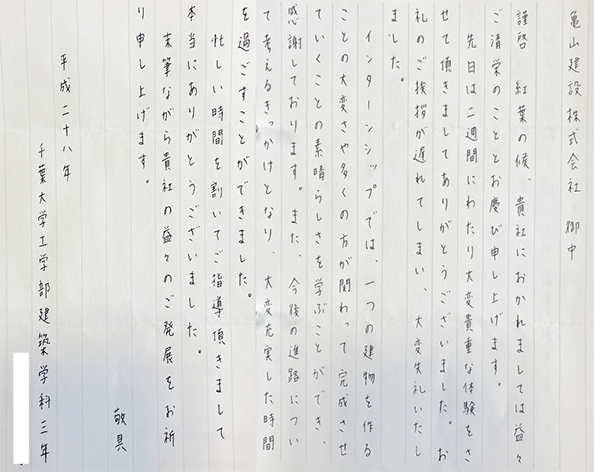 亀山建設株式会社 御中
謹啓 紅葉の候、貴社におかれましては益々
ご清栄のこととお慶び申し上げます。
先日は二週間にわたり大変貴重な体験をさ
せて頂きましてありがとうございました。お
礼のご挨拶が遅れてしまい、大変失礼いたし
ました。
インターンシップでは、一つの建物を作る
ことの大変さや多くの方が関わって完成させ
ていくことの素晴らしさを学ぶことができ、
感謝しております。また、今後の進路につい
て考えるきっかけとなり、大変充実した時間
を過ごすことができました。
忙しい時間を割いてご指導頂きまして
本当にありがとうございました。
末筆ながら貴社の益々のご発展をお祈
り申し上げます。
敬具
平成二十八年
千葉大学工学部建築学科三年